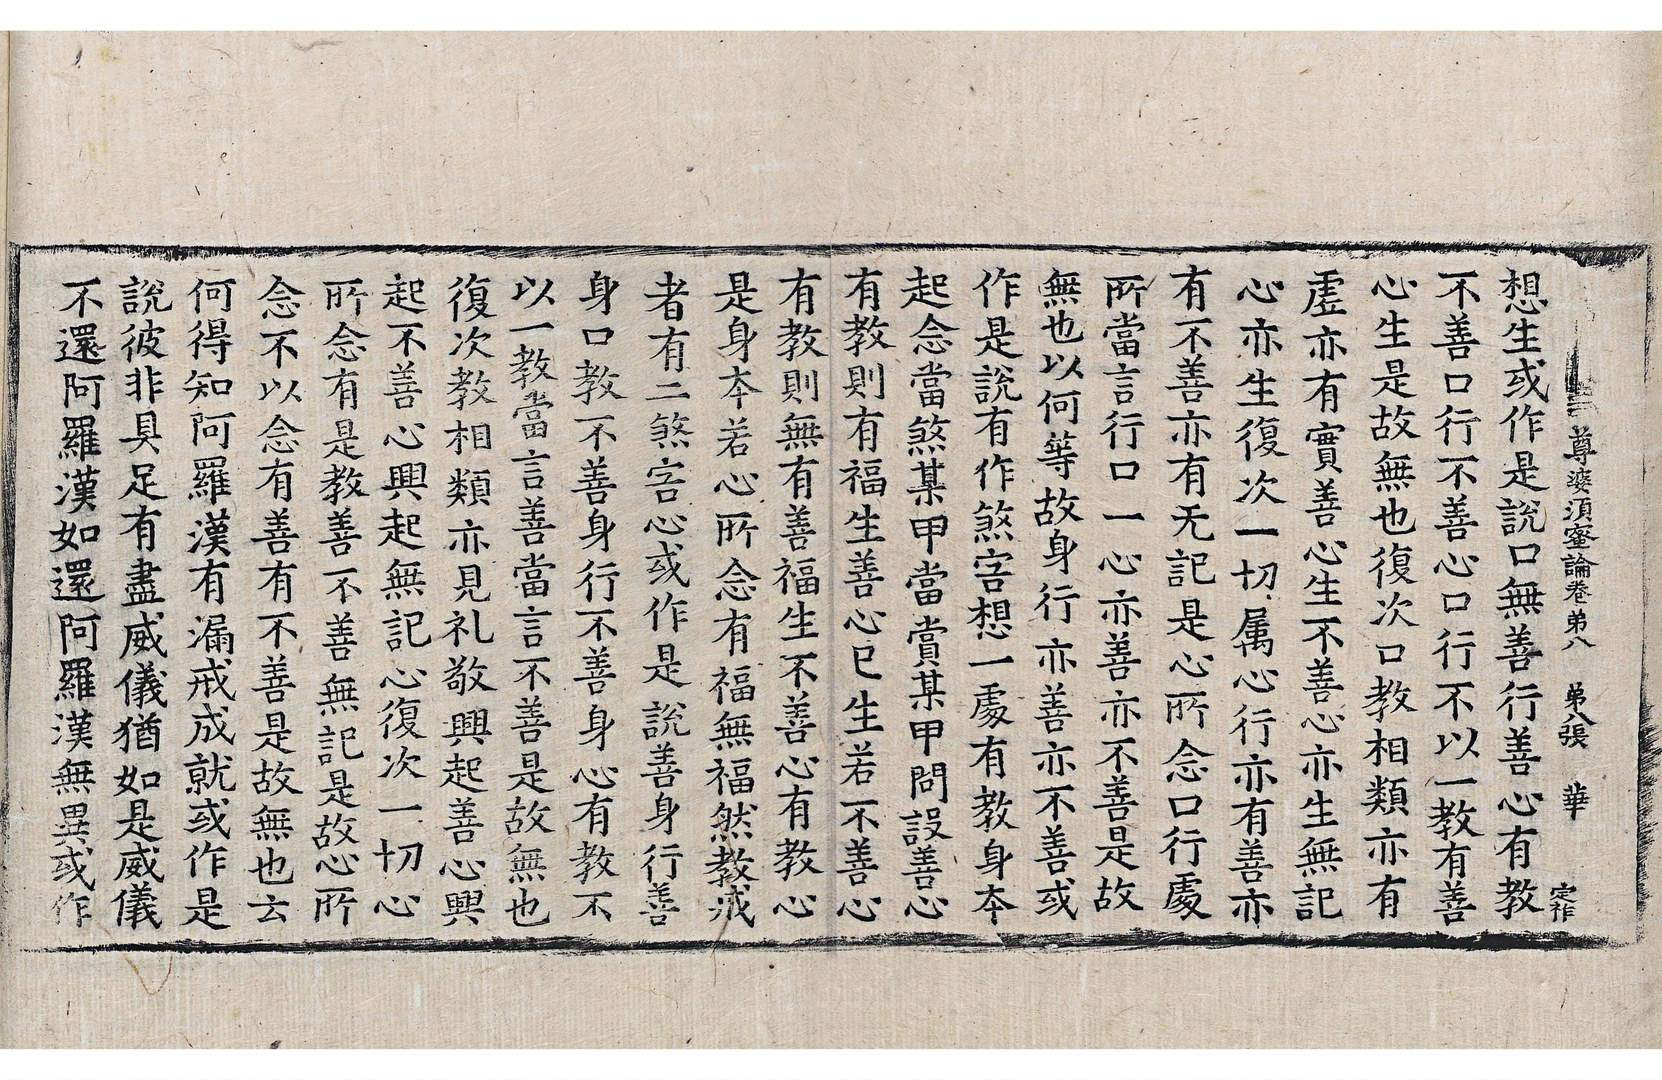 尊婆須蜜論卷第八 第八張 華 定祚
想生或作是說口無善行善心有教
不善口行不善心口行不以一教有善
心生是故無也復次口教相類亦有
虛亦有實善心生不善心亦生無記
心亦生復次一切属心行亦有善亦
有不善亦有无記是心所念口行處
所當言行口一心亦善亦不善是故
無也以何等故身行亦善亦不善或
作是說有作煞害想一處有教身夲
起念當煞某甲當賞某甲問設善心
有教則有福生善心已生若不善心
有教則無有善福生不善心有教心
是身夲若心所念有福無福然教戒
者有二煞害心或作是說善身行善
身口教不善身行不善身心有教不
以一教當言善當言不善是故無也
復次教相類亦見礼敬興起善心興
起不善心興起無記心復次一切心
所念有是教善不善無記是故心所
念不以念有善有不善是故無也云
何得知阿羅漢有漏戒成就或作是
說彼非具足有盡威儀猶如是威儀
不還阿羅漢如還阿羅漢無異或作